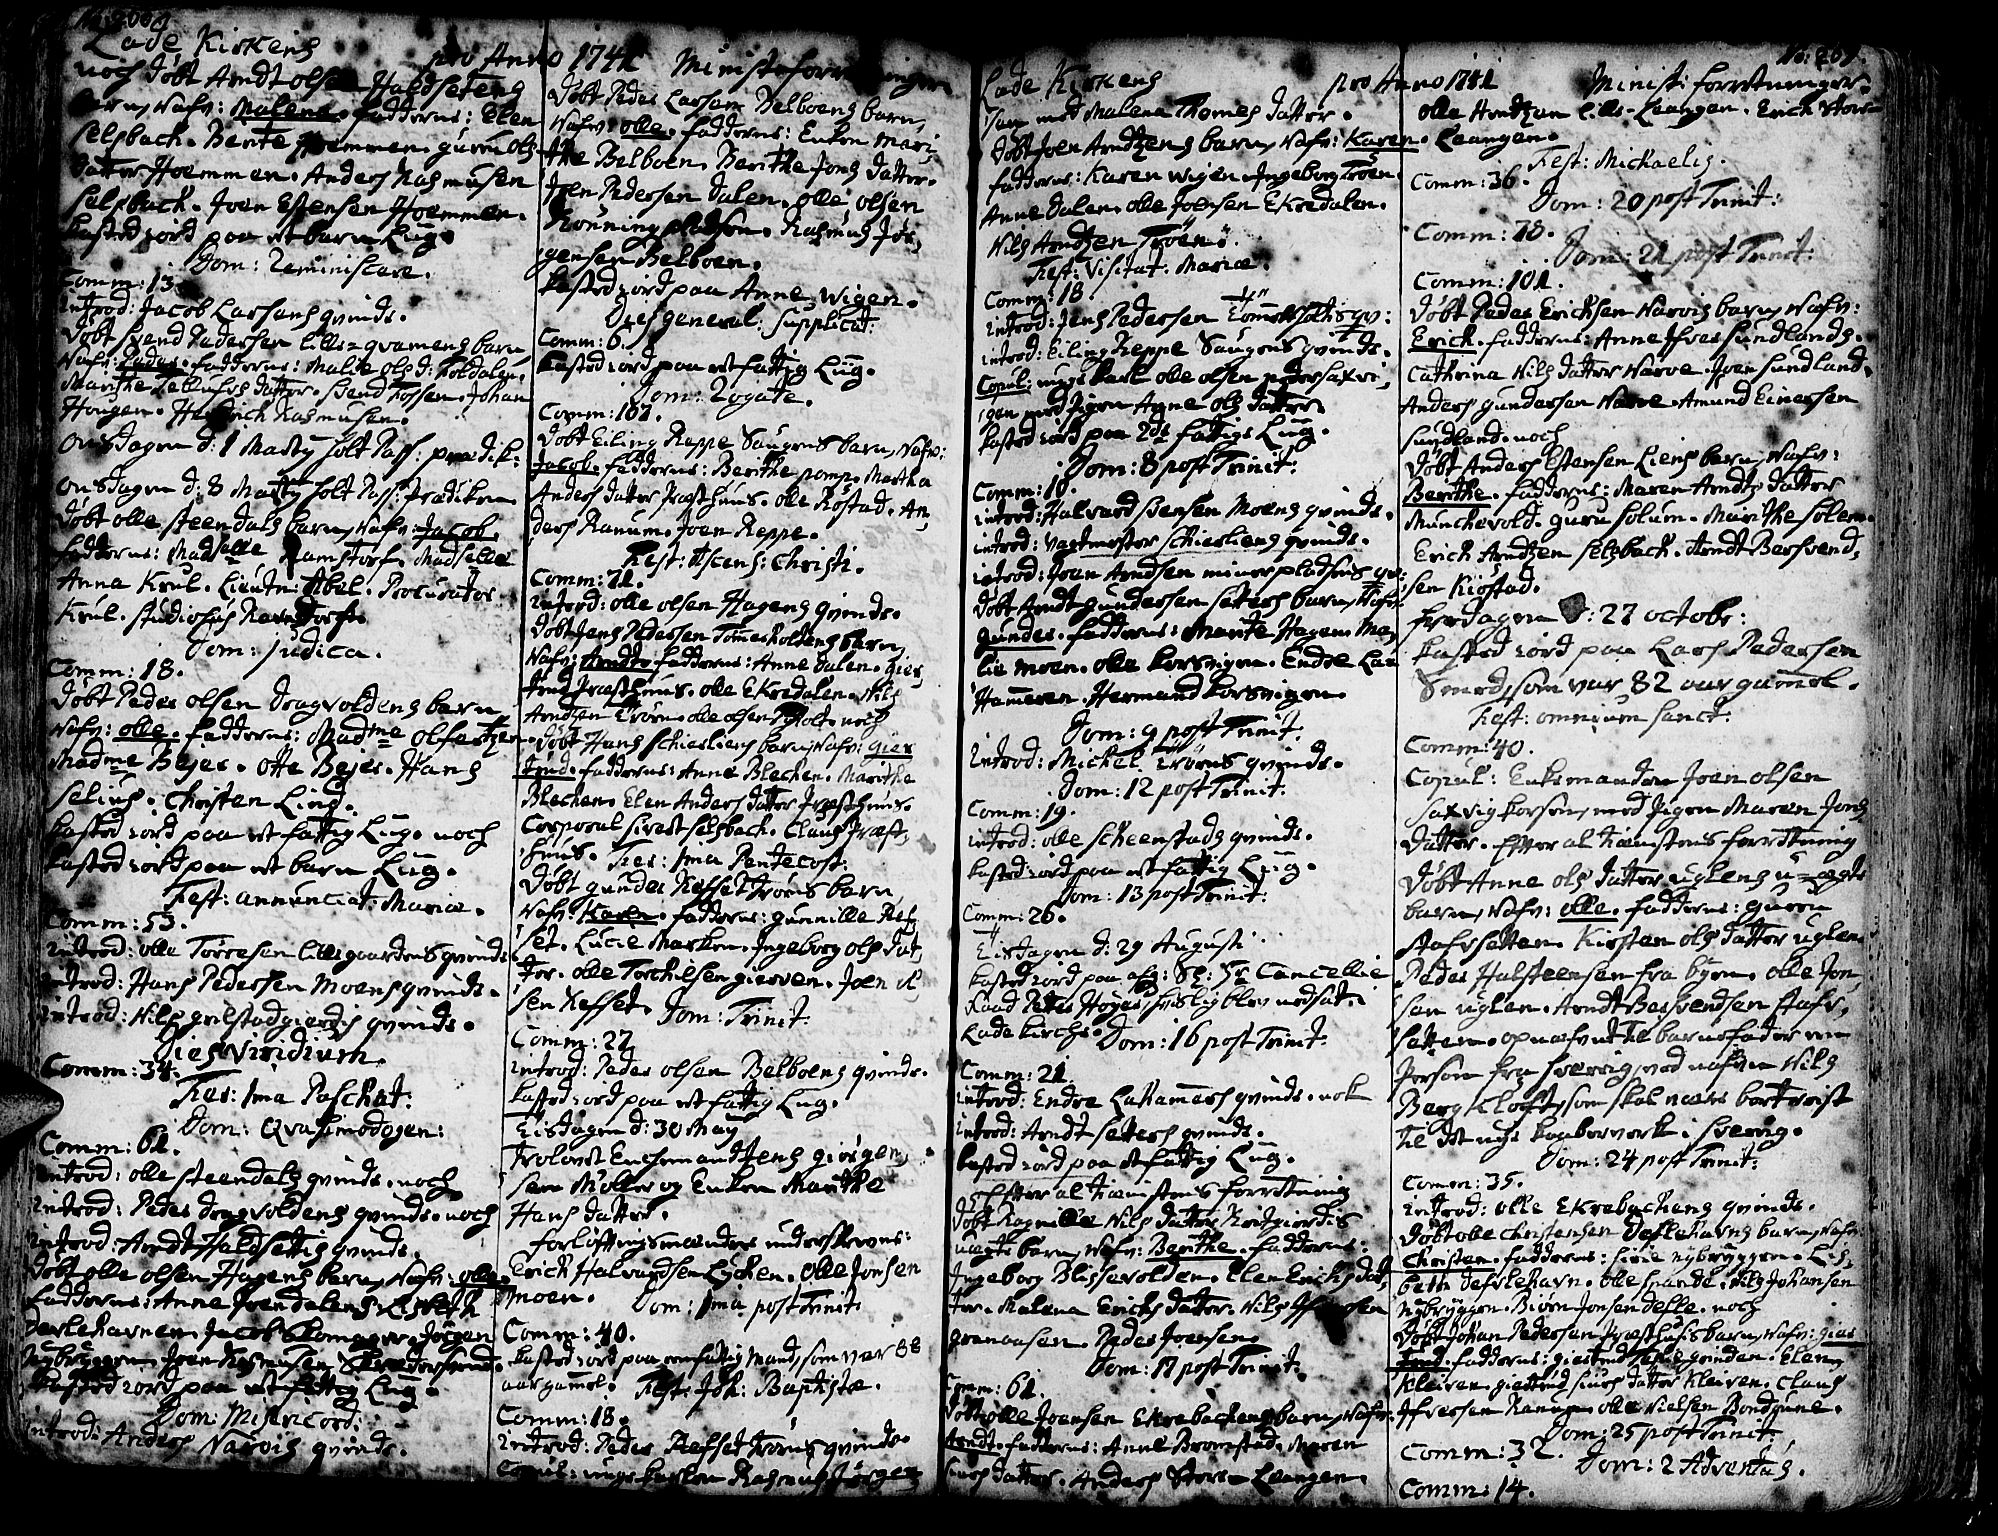 Lade Kirkens
pro Anno 1741 Ministeforretninger
noch døbt Arndt olsen Haldsetens
barn, Nafv: Malena. fadderne: Elen
selsbach. Berite Hoemmen. guru ols
datter Hoemmen. Anders Rasmusen
selsback. Joen Estensen Hoemmen.
kasted iord paa et barn Liig.
Dom: Reminiscere.
Comm: 13.
introd: Jacob Larsens qvinde.
Døbt Svend Pedersen Lille-gvamens barn
Nafv: Peder. fadderne: Malene
Marithe datter. Svend Fossen. Johan
Hougen. Henrich Rasmusen.
Onsdagen d: 1 Marty holt Pass: prædik:
Onsdagen d: 8 Marty holt Pass: prædiken
Døbt olle steendals barn, Nafv: Jacob.
fadderne: Madselle Ramstorf. Madselle
Anna Krul. Lieutn: Abel. Procurator
Krul. studiosus
Dom: Judica.
Comm: 18.
Døbt Peder olsen dragvoldens barn
Nafv: olle. fadderne: Madme olfertzen.
Madme Bejer. Otte Bejer. Hans
Selius. Christen Lind.
kasted iord paa et fattig Liig. noch
kasted iord paa et barn Liig.
Fest: annunciat: Mariæ.
Comm: 53.
introd: olle Torresen Lillegaardens qvinde
introd: Hans Pedersen Moens qvinde.
introd: Nils qvinde.
Dies Viridium.
Comm: 34.
Fer: 1ma Paschat:
Dom: Qvasimodogen:
Comm: 61.
introd: olle steendals qvinde. noch
introd: Peder dragvoldens qvinde. noch
introd: Arndt Haldsettes qvinde.
Døbt olle olsen Hagens barn, Nafv: olle.
fadderne: Anne Joendalen. Lisbeth
Devlehavnen. Jacob Jørgen
Nybryggen. Joen Rasmusen
kasted iord paa et fattig Liig.
Dom: Misericord:
introd: Anders Narvis qvinde.
Døbt Peder Larsen Belboens barn,
Nafv: olle. fadderne: Enken Mari,
the Belboen. Berithe Jons datter.
Joen Pedersen dalen. olle olsen
Rønningpladsen. Rasmus Jør,
gensen Belboen.
kasted iord paa Anne Wigen.
Dies general: supplicat:
Comm: 6.
kasted iord paa et fattig Liig.
Dom: Rogate.
Comm: 107.
Døbt Eiling Reppe Saugens barn, Nafv:
Jacob. fadderne: Berithe pomp. Martha
Anders datter Præsthuus. olle Rostad. An,
ders Ranum. Joen Reppe.
Fest: Ascens: Christi.
Comm: 71.
introd: olle olsen Hagens qvinde.
Døbt Jens Pedersen Tomesholdens barn
Nafv: Arndt. fadderne: Anne dalen. gier,
trud Præsthuus. olle Ekredalen. Nils
Arndtzen Trøen. olle olsen Holt. noch
Døbt Hans Schierliens barn, Nafv: gier
trud. fadderne: Anne Blechen. Marithe
Blechen. Elen Anders datter Præsthuus.
Corporal sivert selsbach. Claus Præst,
huus. Fer: 1ma Pentecost:
Døbt gunder Refsettrøens barn
Nafv: Karen. fadderne: gunnille Ref,
set. Lucie Marken. Ingeborg ols dat,
ter. olle Torchilsen gierven. Joen ol
sen Refset. Dom: Trinit:
Comm: 27
introd: Peder olsen Belboens qvinde.
kasted iord paa et fattig Liig.
Tisdagen d: 30 May
Trolovet Enchemand Jens giørgen,
sen Møller og Enken Marithe
Hans datter.
forloftningsmænder underskrevne:
Erick Halvordsen Lychen. Olle Jonsen
Moen. Dom: 1ma post Trinit:
Comm: 40.
kasted iord paa een fattig mand, som var 88
aar gammel. Fest: Joh: Baptistæ.
Comm: 18.
introd: Peder Refset Trøens qvinde.
Copul: unge karlen Rasmus Jørgen
Lade Kirkens
pro Anno 1741 Minist: forretninger.
sen med Malena Thomes datter.
Døbt Joen Arndtzens barn, Nafv: Karen.
fadderne: Karen Wigen. Ingeborg Trøen.
Anne Dalen. olle Joensen Ekredalen.
Nils Arndtzen Trøen.
Fest: Visitat: Mariæ.
Comm: 18.
introd: Jens Pedersen qv:
introd: Eiling Reppe Saugens qvinde.
Copul: unge karl olle olsen nedersaxvi,
gen med Pigen Anne ols datter.
kasted iord paa 2de fattige Liig.
Dom: 8 post Trinit:
Comm: 10.
introd: Halvard Bensen Moens qvinde.
introd: Vagtmester Schierliens qvinde.
introd: Joen Arndsen qv:
Døbt Arndt gundersen setters barn, Nafv:
gunder. fadderne: Marite Hagen. Ma,
lie Moen. olle korsvigen. Endre Laa
Hameren. Hermand korsvigen.
Dom: 9 post Trinit:
introd: Michel Trøens qvinde.
Dom: 12 post Trinit:
Comm: 19.
introd: olle scheenstads qvinde.
kasted iord paa et fattig Liig.
Dom: 13 post Trinit:
Comm: 26.
Tisdagen d: 29 Augusti
kasted iord paa afg: Sl: Hr Cancellie
Raad Peter Høyer, hvis lig blev nedsat i
Lade kirche. Dom: 16 post Trinit:
Comm: 21
introd: Endre Lahammers qvinde. nok
introd: Arndt setters qvinde.
kasted iord paa et fattig Liig.
Efter al tienistens forretning
Døbt Ragnille Nils datter Rotgierdis
uægte barn, Nafv: Berithe. fadderne:
Ingeborg Blissevolden. Elen Ericks dat,
ter. Malena Ericks datter. Nils
granaasen. Peder Joensen.
Dom: 17 post Trinit:
Comm: 61.
Døbt olle Joensen Ekrebackens barn, Nafv:
Arndt. fadderne: Anne Bromstad. Maren
siurs datter. Anders store Leangen.
olle Arndtzen Lille-Leangen. Erich store
Leangen.
Fest: Michaelis.
Comm: 36.
Dom: 20 post Trinit:
Comm: 78.
Dom: 21 post Trinit:
Comm: 101.
Døbt Peder Ericksen Narvis barn, Nafv:
Erick. fadderne: Anne Ifvers sundlands.
Cathrina Nils datter Narve. Joen sundland.
Anders gundersen Narve. Amund Einersen
sundland. noch
Døbt Anders Estensen Liens barn, Nafv:
Berithe. fadderne: Maren Arndtz datter
Munchevold. guru solum. Marithe solem.
Erich Arndtzen selsback. Arndt Bersvend,
sen Kiøstad.
fredagen d: 27 octobr:
kasted iord paa Lars Pedersen
Smed, som var 82 aar gammel.
Fest: omnium sanct:
Comm: 40.
Copul: Enkemanden Joen olsen
saxvig korsen, med Pigen Maren Jons
datter. Efter al tienistens forretning
Døbt Anne ols datter uglens u-ægte
barn, Nafv: olle. fadderne: guru
stafsetten. Kirsten ols datter uglen.
Peder Halsteensen fra byen. olle Jon
sen uglen. Arndt Bersvendsen stafv,
setten. opnafvnte til barnefader een
Person fra sverrig, ved nafn Nils
Berg Kloft, som skal være bortreist
til det nye kaaberverk i sverig.
Dom: 24 post Trinit:
Comm: 35.
introd: olle Ekrebackens qvinde.
Døbt olle Christensen Deflehavns barn, Nafv:
Christen. fadderne: Lucie nybryggen. Lis,
beth Deflehavn. olle Nils Johansen
Nybryggen. Biørn Jonsen Defle. noch
Døbt Johan Pedersen Præsthuus barn, Nafv: gier
trud. fadderne: giertrud Tesle qvinden. Elen
Kleiven. giertrud siurs datter Kleiven. Claus
Ifversen Ranum. olle Nielsen Bondhune.
Dom: 25 post Trinit:
Comm: 32.
Dom: 2 Adventus.
Comm: 14.